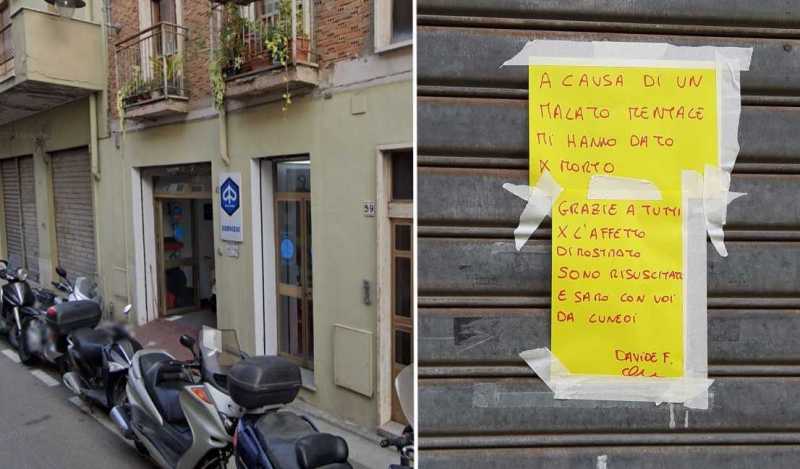 39
A CAUSA DI UN
MALATO MENTALE
MI HANNO DATO
X MORTO
GRAZIE A TUTTI
X L'AFFETTO
DIMOSTRATO
SONO RISUSCITATO
E SARO CON VOI
DA LUNEDI
DAVIDE F.